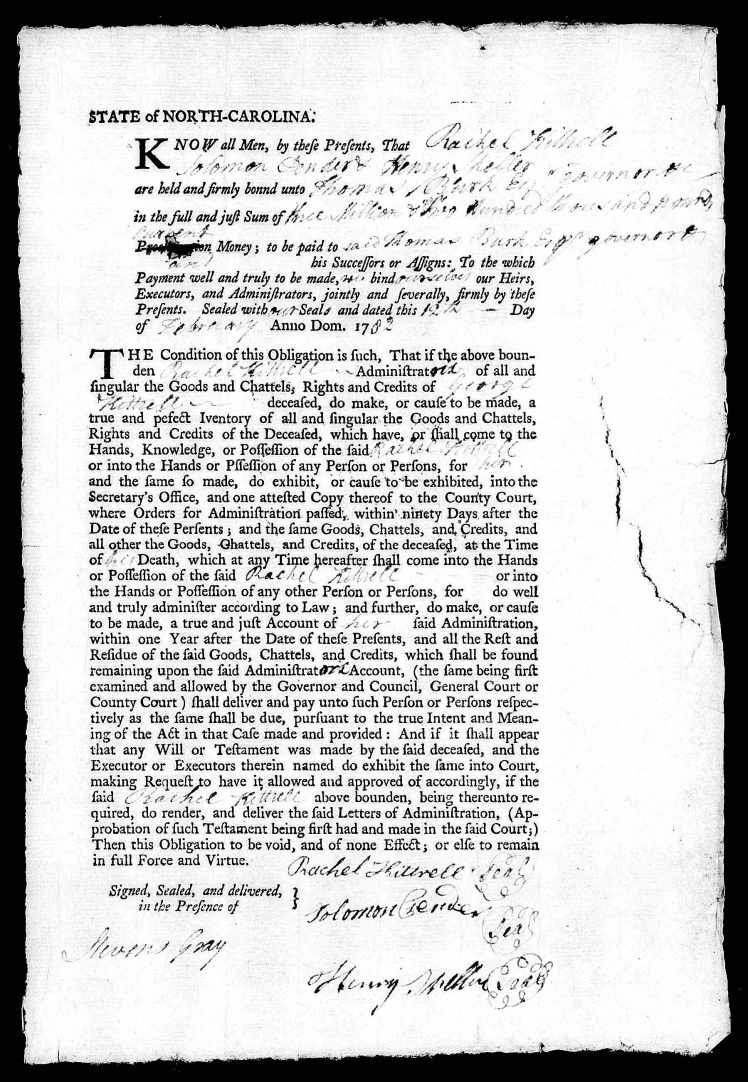 STATE of NORTH-CAROLINA.
KNOW all Men, by theſe Preſents, That Rachel Kittrell
Solomon Pender & Henry
are held and firmly bonnd unto Thomas Burk Esqr Governor &c
in the full and juſt Sum of three Million & two Hundred thousand pounds
Current
Money; to be paid to said Thomas Burk Esqr governor &c
and his Succeſſors or Aſſigns: To the which
Payment well and truly to be made, we bind ourselves our Heirs,
Executors, and Adminiſtrators, jointly and ſeverally, firmly by theſe
Preſents. Sealed with our Seals and dated this 12th Day
of February Anno Dom. 1782
THE Condition of this Obligation is ſuch, That if the above boun-
den Rachel Kittrell Adminiſtratrix of all and
ſingular the Goods and Chattels, Rights and Credits of George
Kittrell deceaſed, do make, or cauſe to be made, a
true and pefect Iventory of all and ſingular the Goods and Chattels,
Rights and Credits of the Deceaſed, which have, or ſhall come to the
Hands, Knowledge, or Poſſeſſion of the ſaid Rachel Kittrell
or into the Hands or Pſſeſſion of any Perſon or Perſons, for her
and the ſame ſo made, do exhibit, or cauſe to be exhibited, into the
Secretary's Office, and one atteſted Copy thereof to the County Court,
where Orders for Adminiſtration paſſed, within ninety Days after the
Date of theſe Perſents; and the ſame Goods, Chattels, and Credits, and
all other the Goods, Chattels, and Credits, of the deceaſed, at the Time
of his Death, which at any Time hereafter ſhall come into the Hands
or Poſſeſſion of the ſaid Rachel Kittrell or into
the Hands or Poſſeſſion of any other Perſon or Perſons, for do well
and truly adminiſter according to Law; and further, do make, or cauſe
to be made, a true and juſt Account of her ſaid Adminiſtration,
within one Year after the Date of theſe Preſents, and all the Reſt and
Reſidue of the ſaid Goods, Chattels, and Credits, which ſhall be found
remaining upon the ſaid Adminiſtratrix Account, (the ſame being firſt
examined and allowed by the Governor and Council, General Court or
County Court) ſhall deliver and pay unto ſuch Perſon or Perſons reſpec-
tively as the ſame ſhall be due, purſuant to the true Intent and Mean-
ing of the Act in that Caſe made and provided: And if it ſhall appear
that any Will or Teſtament was made by the ſaid deceaſed, and the
Executor or Executors therein named do exhibit the ſame into Court,
making Requeſt to have it allowed and approved of accordingly, if the
ſaid Rachel Kittrell above bounden, being thereunto re-
quired, do render, and deliver the ſaid Letters of Adminiſtration, (Ap-
probation of ſuch Teſtament being firſt had and made in the ſaid Court;)
Then this Obligation to be void, and of none Effect; or elſe to remain
in full Force and Virtue.
Rachel Kittrell Seal
Signed, Sealed, and delivered,
in the Preſence of
Solomon Pender Seal
Stevens Gray
Henry Seal